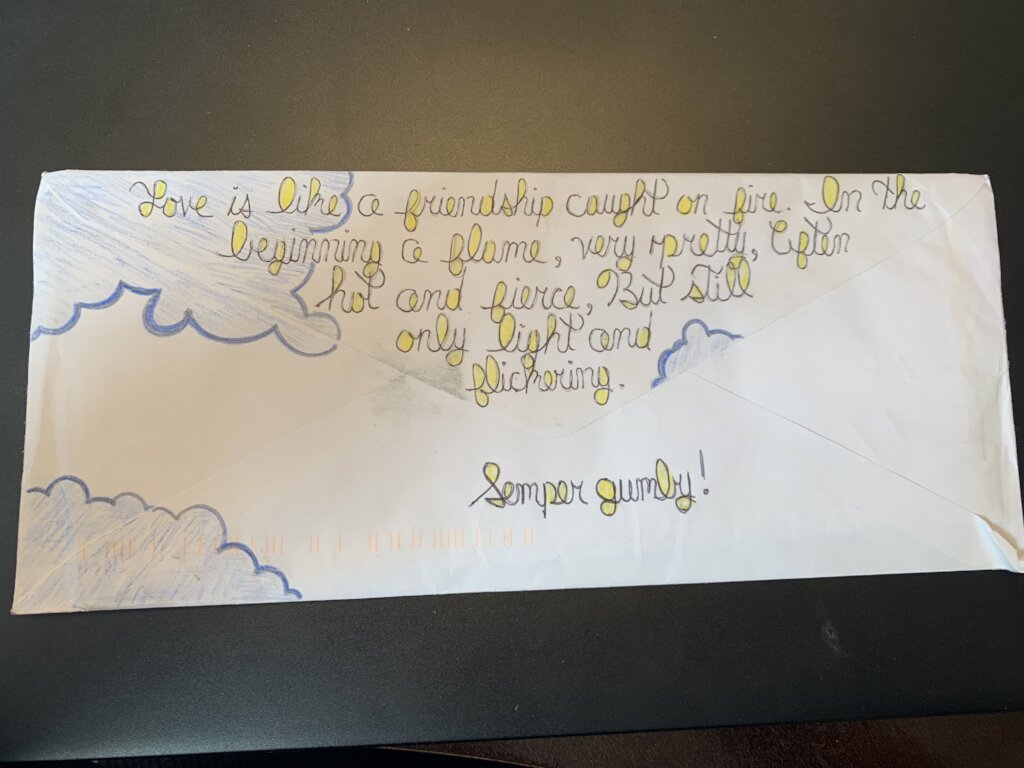 Love is like a friendship caught on fire. In the
beginning a flame, very pretty, Often
hot and fierce, But still
only light and
flickering.
Semper gumby!